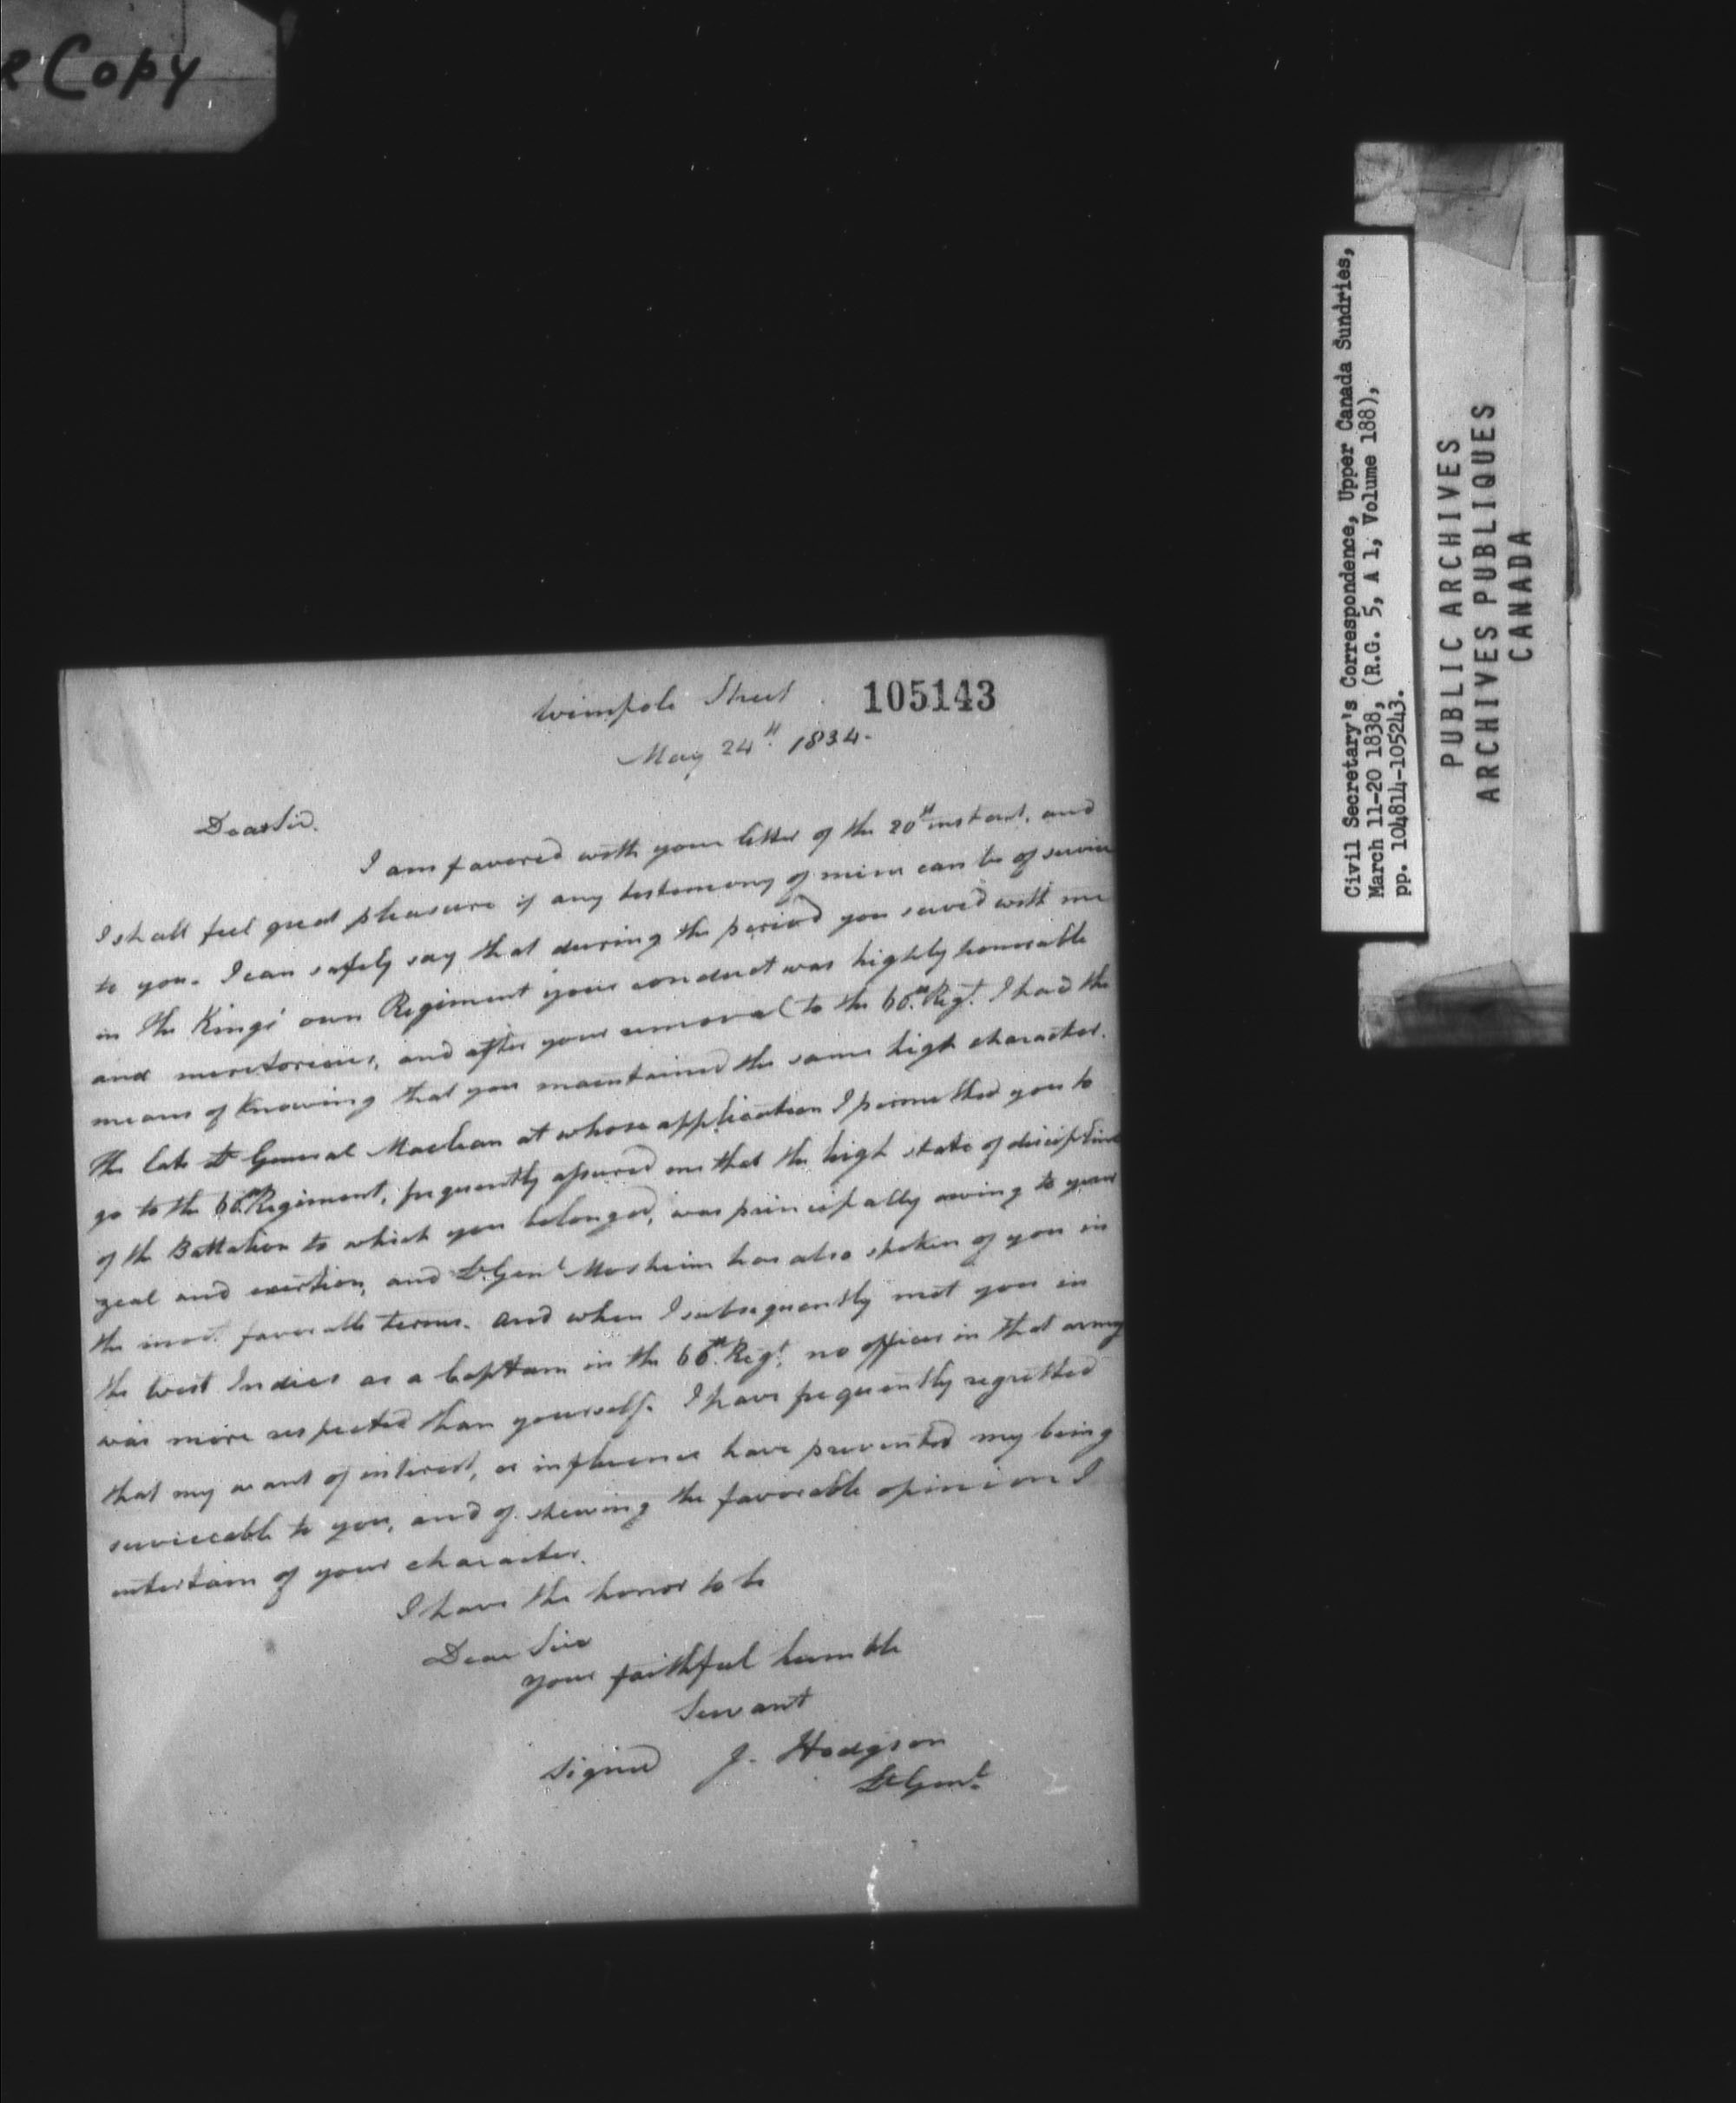 e Copy
Wimpole Street
105143
May 24th 1834.
Dear Sir.
I am favored with your letter of the 20th instant, and
I shall feel great pleasure if any testimony of mine can be of service
to you. I can safely say that during the period you served with me
in the Kings' own Regiment your conduct was highly honorable
and meritorious, and after your removal to the 60th Regt. I had the
means of knowing that you maintained the same high character.
The late Lt General Maclean at whose application I permitted you to
go to the 60th Regiment, frequently assured me that the high state of discipline
of the Battalion to which you belonged, was principally owing to your
zeal and exertion, and Lt. Genl. Mosheim has also spoken of you in
the most favorable terms. and when I subsequently met you in
the West Indies as a Captain in the 60th Regt. no officer in that army
was more respected than yourself. I have frequently regretted
that my want of interest, or influence have prevented my being
serviceable to you, and of shewing the favorable opinion I
entertain of your character.
I have the honor to be
Dear Sir
your faithful humble
Servant
signed J. Hodgson
Lt Genl.
Civil Secretary's Correspondence, Upper Canada Sundries,
March 11-20 1838, (R.G. 5, A 1, Volume 188),
pp. 104814-105243.
PUBLIC ARCHIVES
ARCHIVES PUBLIQUES
CANADA